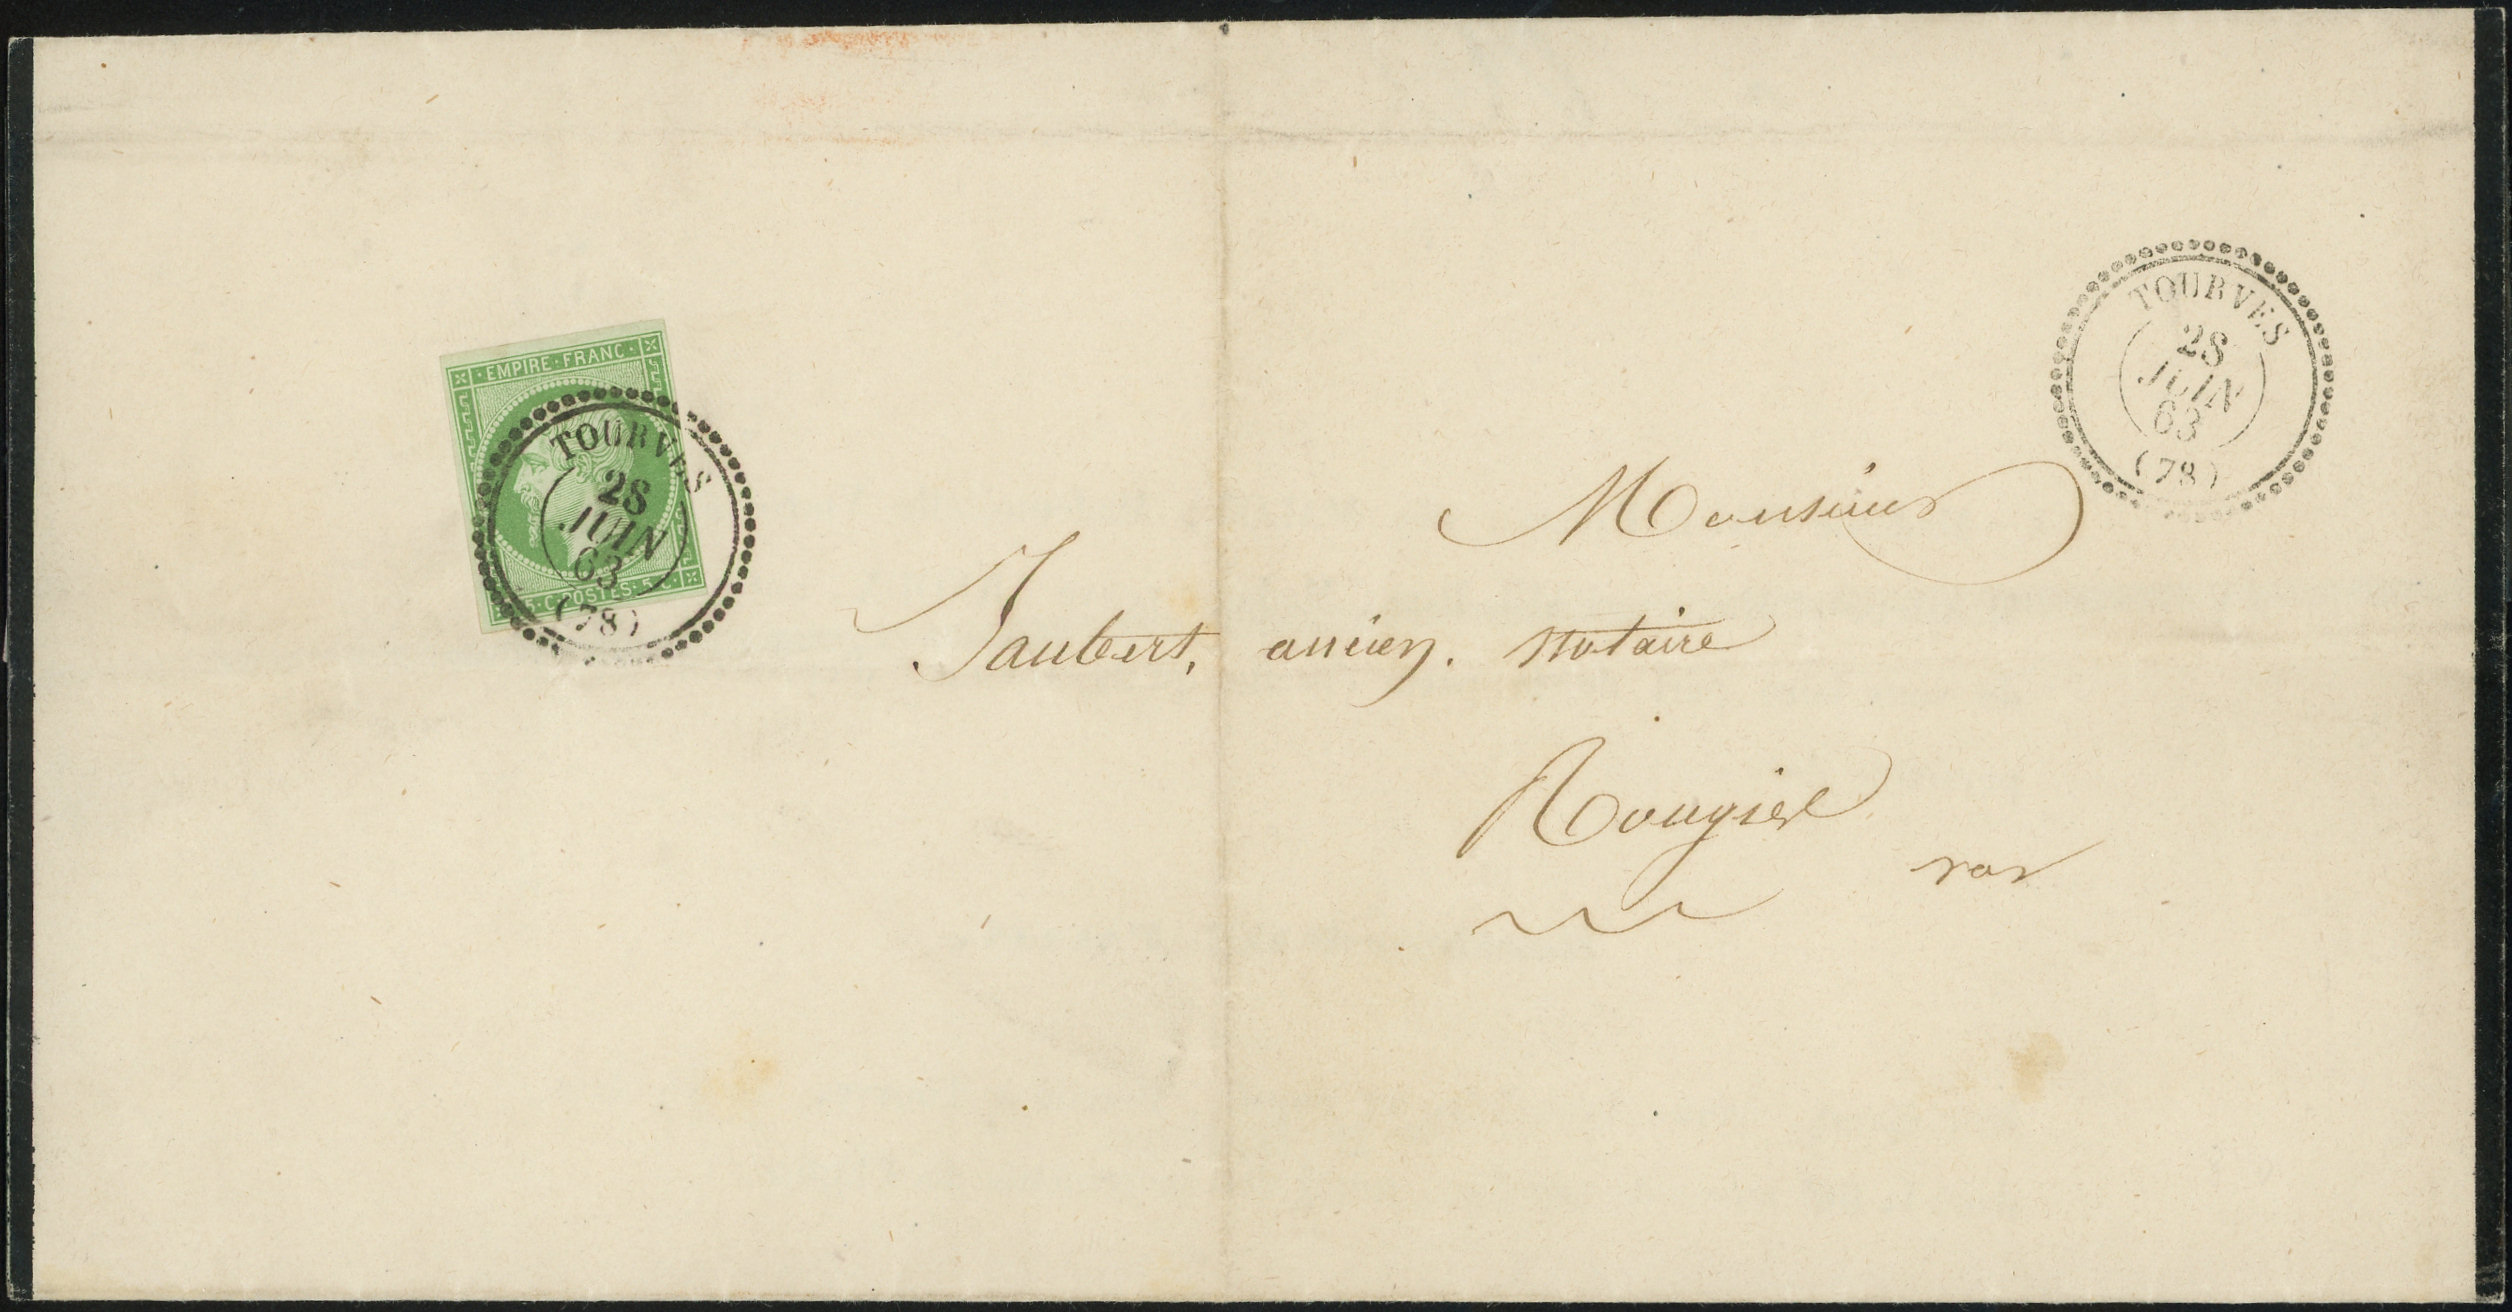 TOURVES
28
JUIN
63
(78)
EMPIRE·FRANC·
5·C·POSTES·5·C·
TOURVES
28
JUIN
63
(78)
Monsieur
Jaubert, ancien. Notaire
Rougier
var